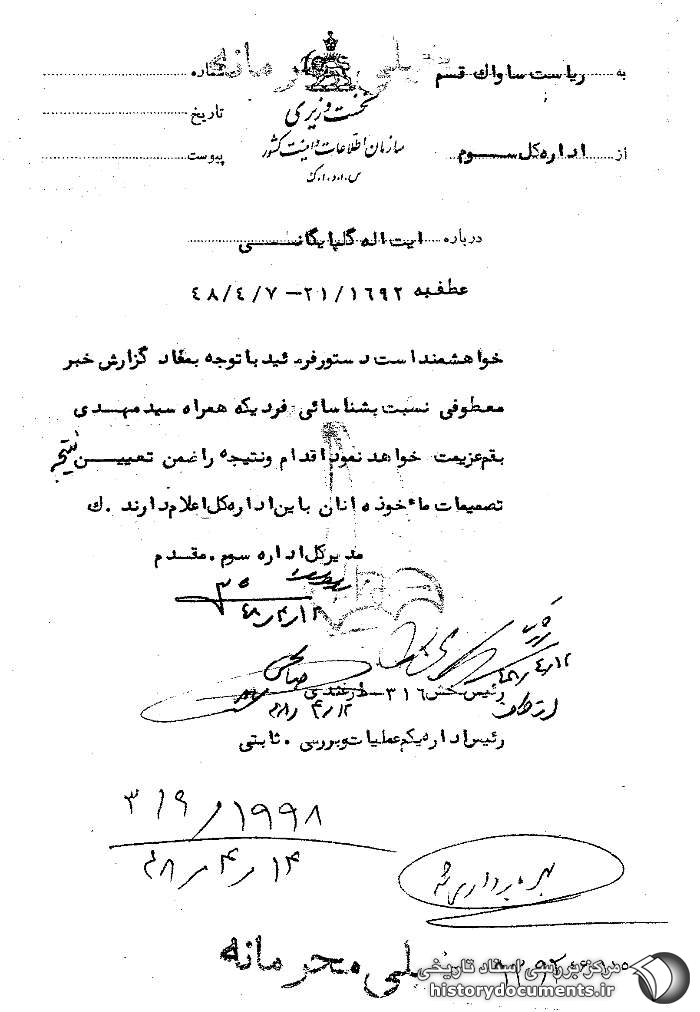 خیلی محرمانه
به ریاست ساواک قم
شماره
نخست وزیری
تاریخ
سازمان اطلاعات و امنیت کشور
از اداره کل سوم
پیوست
س.ا.و.ا.ک
درباره ایت اله گلپایگانی
عطف به ۲۱/۱٦۹۲ – ٤۸/٤/۷
خواهشمند است دستور فرمائید با توجه بمفاد گزارش خبر
معطوفی نسبت بشناسائی فردیکه همراه سید مهدی
بقم عزیمت خواهد نمود اقدام و نتیجه را ضمن تعیین نتیجه
تصمیمات ماءخوذه انان باین اداره کل اعلام دارند . ک
مدیرکل اداره سوم . مقدم
رئیس بخش ۳۱٦ –
رئیس اداره یکم عملیات و بررسی . ثابتی
۳۱۶/۱۹۹۸
۴۸/۴/۱۴
بهره برداری شد
خیلی محرمانه
مرکز بررسی اسناد تاریخی
historydocuments.ir